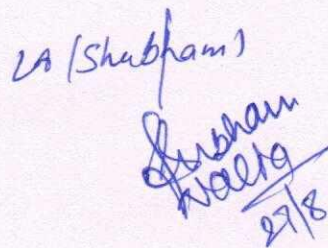 LA (Shubham)
Shubham
Walia
27/8